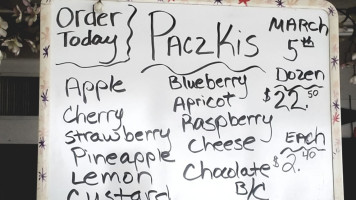 Order
Today
Paczkis
March
5th
Apple
Cherry
Strawberry
Pineapple
Lemon
Custard
Blueberry
Apricot
Raspberry
Cheese
Chocolate
B/C
Dozen
$22.50
Each
$2.40